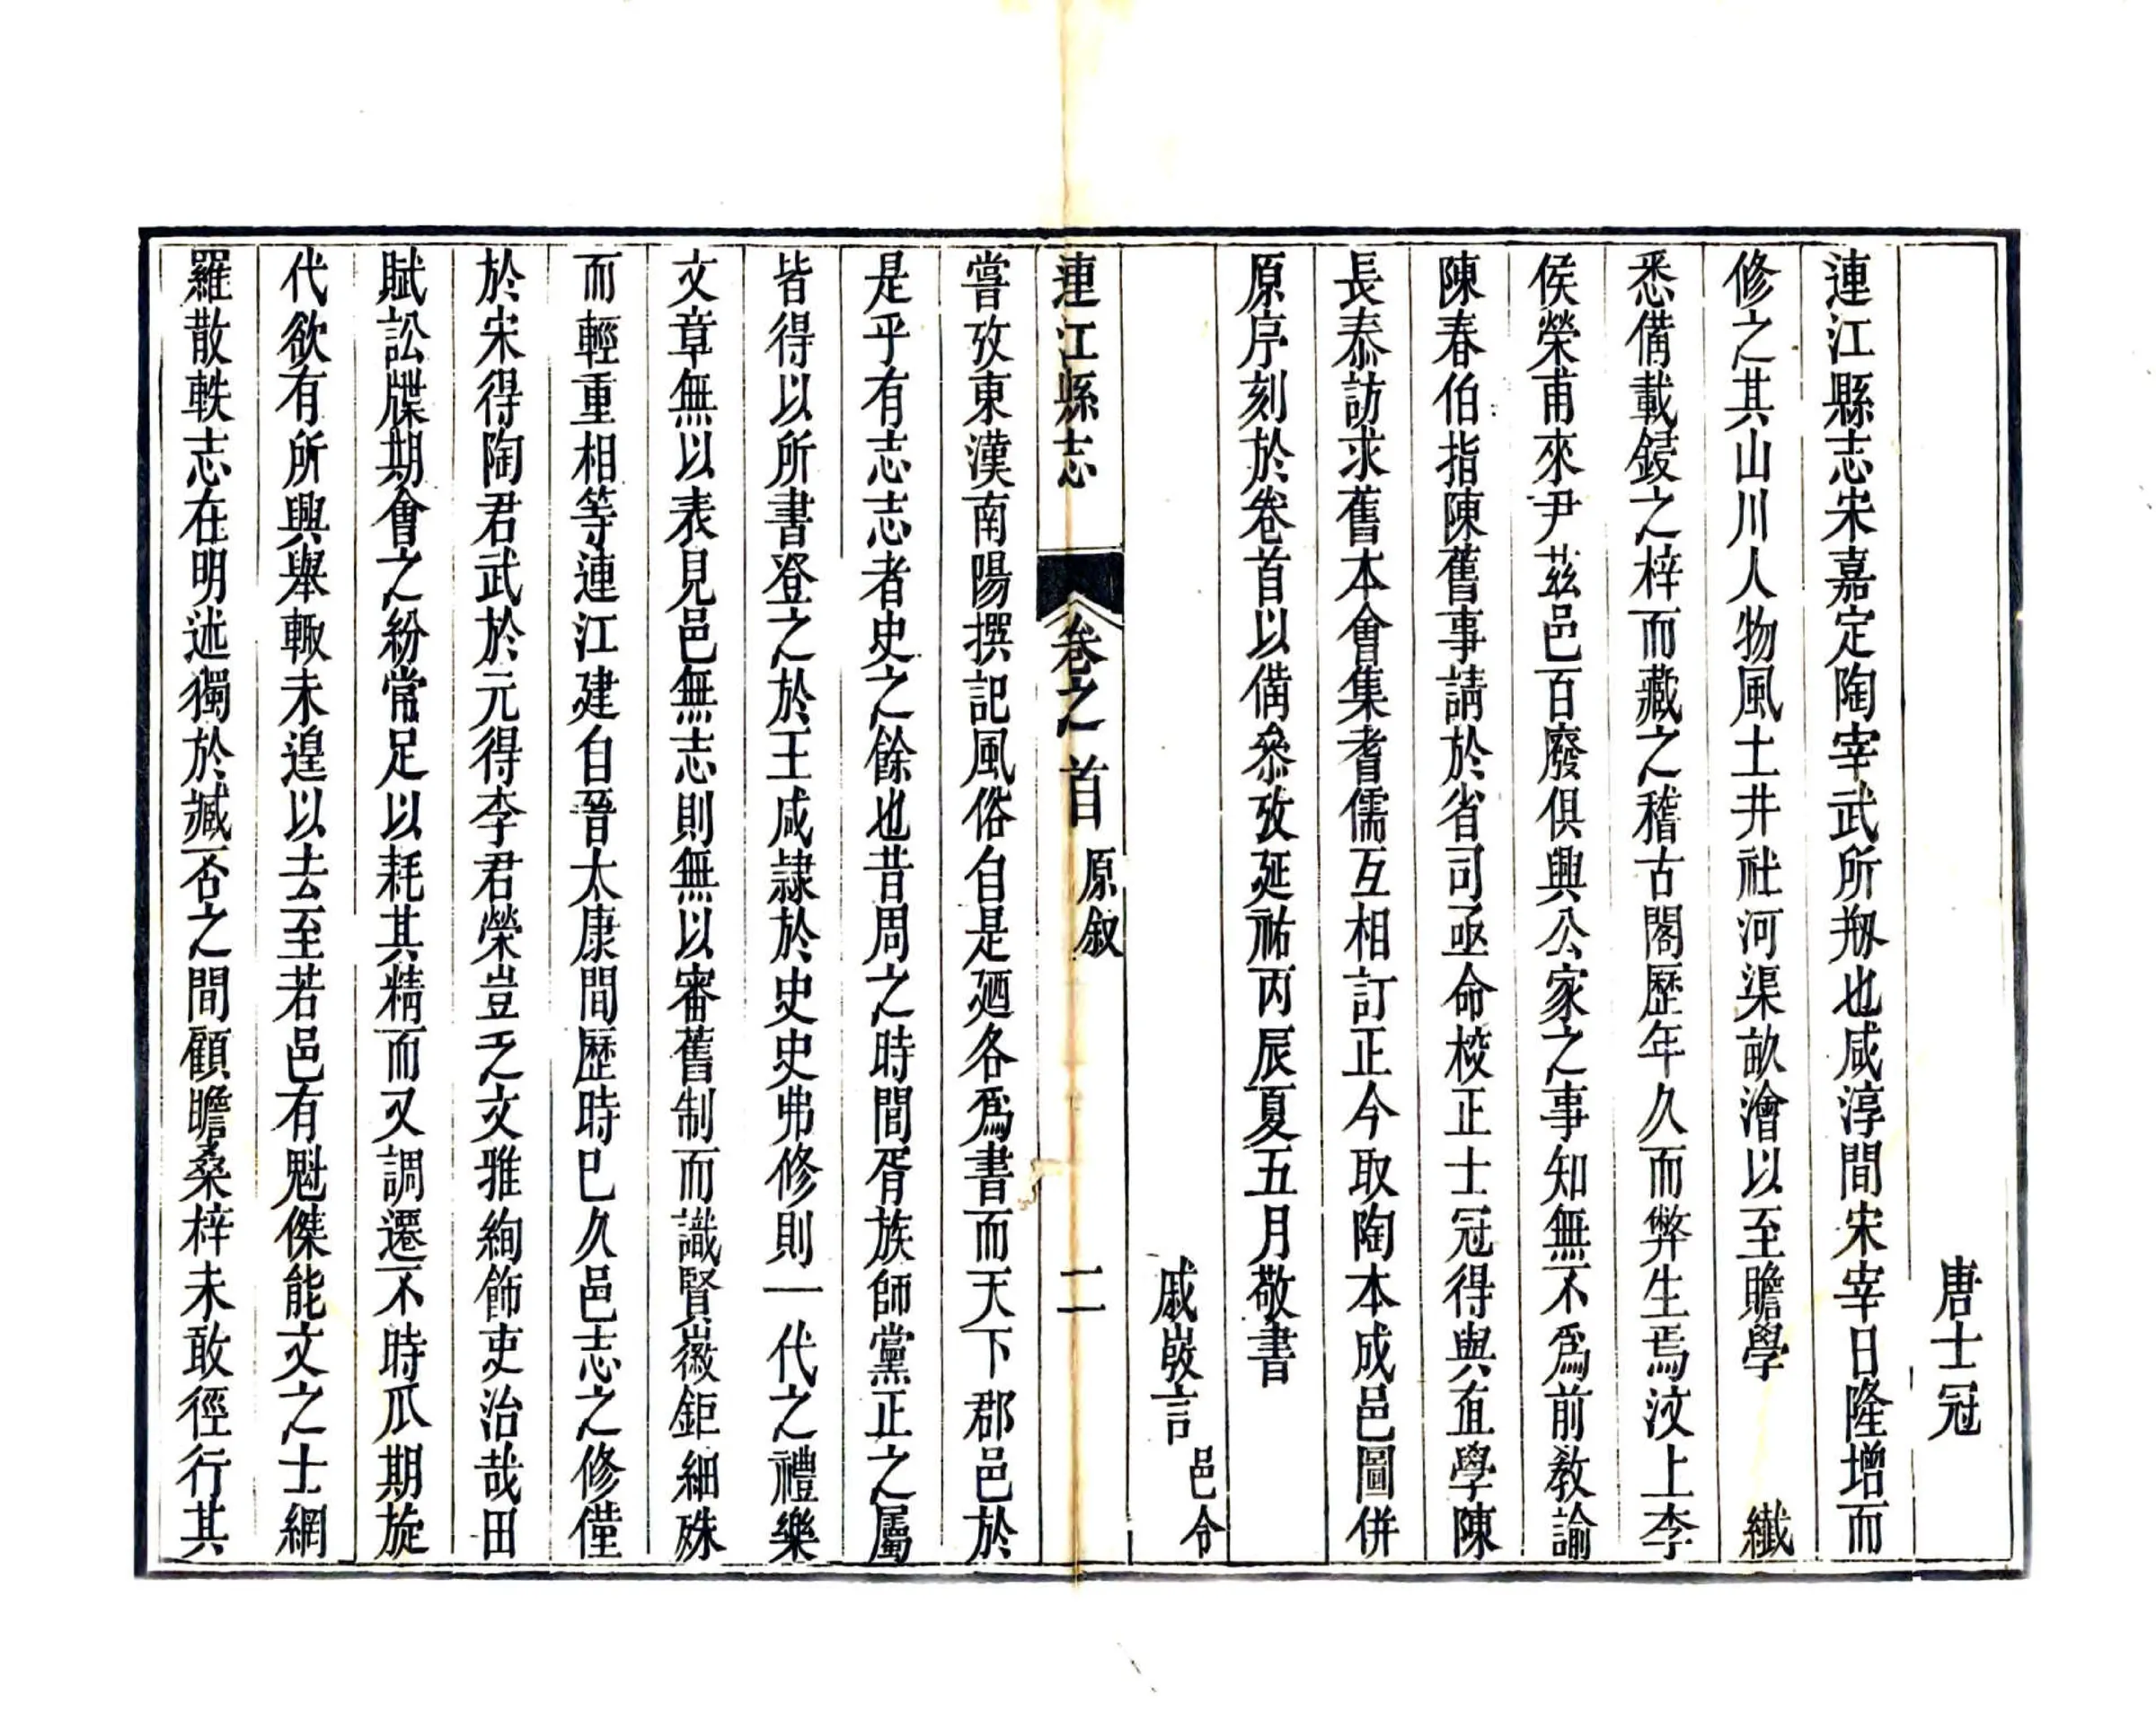 唐士冠
連江縣志宋嘉定陶宰武所剏也咸淳間宋宰日隆增而
修之其山川人物風土井社河渠畝澮以至贍學 纖
悉備載鋟之梓而藏之稽古閣歷年久而弊生焉汶上李
侯榮甫來尹茲邑百廢俱興公家之事知無不爲前敎諭
陳春伯指陳舊事請於省司亟命校正士冠得與直學陳
長泰訪求舊本會集耆儒互相訂正今取陶本成邑圖併
原序刻於卷首以備叅攷延祐丙辰夏五月敬書
戚嶅言 邑令
連江縣志 卷之首 原叙 二
嘗攷東漢南陽撰記風俗自是廼各爲書而天下郡邑於
是乎有志志者史之餘也昔周之時閭胥族師黨正之屬
皆得以所書登之於王咸隷於史史弗修則一代之禮樂
文章無以表見邑無志則無以審舊制而識賢嶶鉅細殊
而輕重相等連江建自晉太康間歷時已久邑志之修僅
於宋得陶君武於元得李君榮豈乏文雅絢飾吏治哉田
賦訟牒期會之紛常足以耗其精而又調遷不時瓜期旋
代欲有所興舉輙未遑以去至若邑有魁傑能文之士網
羅散軼志在明述獨於臧否之間顧瞻桑梓未敢徑行其